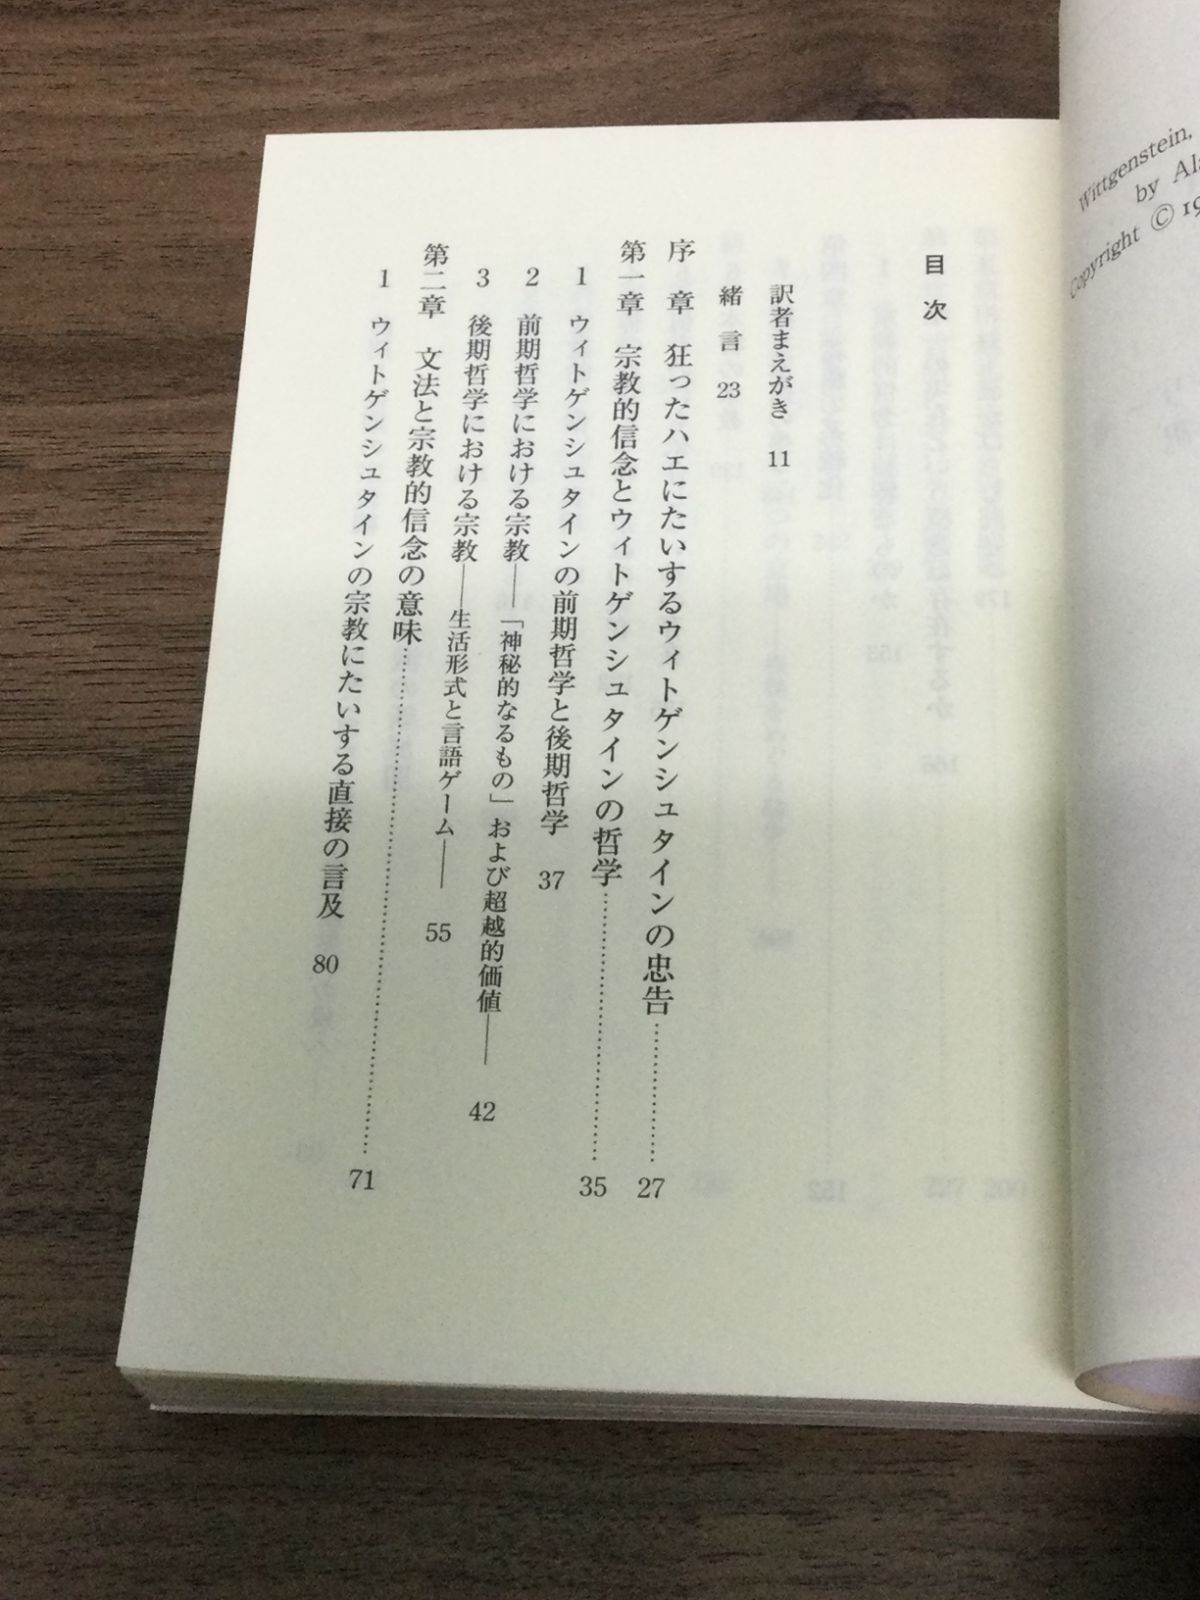 目次
訳者まえがき 11
緒言 23
序章 狂ったハエにたいするウィトゲンシュタインの忠告…… 27
第一章 宗教的信念とウィトゲンシュタインの哲学…… 35
1 ウィトゲンシュタインの前期哲学と後期哲学 37
2 前期哲学における宗教――「神秘的なるもの」および超越的価値―― 42
3 後期哲学における宗教――生活形式と言語ゲーム―― 55
第二章 文法と宗教的信念の意味…… 71
1 ウィトゲンシュタインの宗教にたいする直接の言及 80
Wittgenstein,
by
Copyright ©